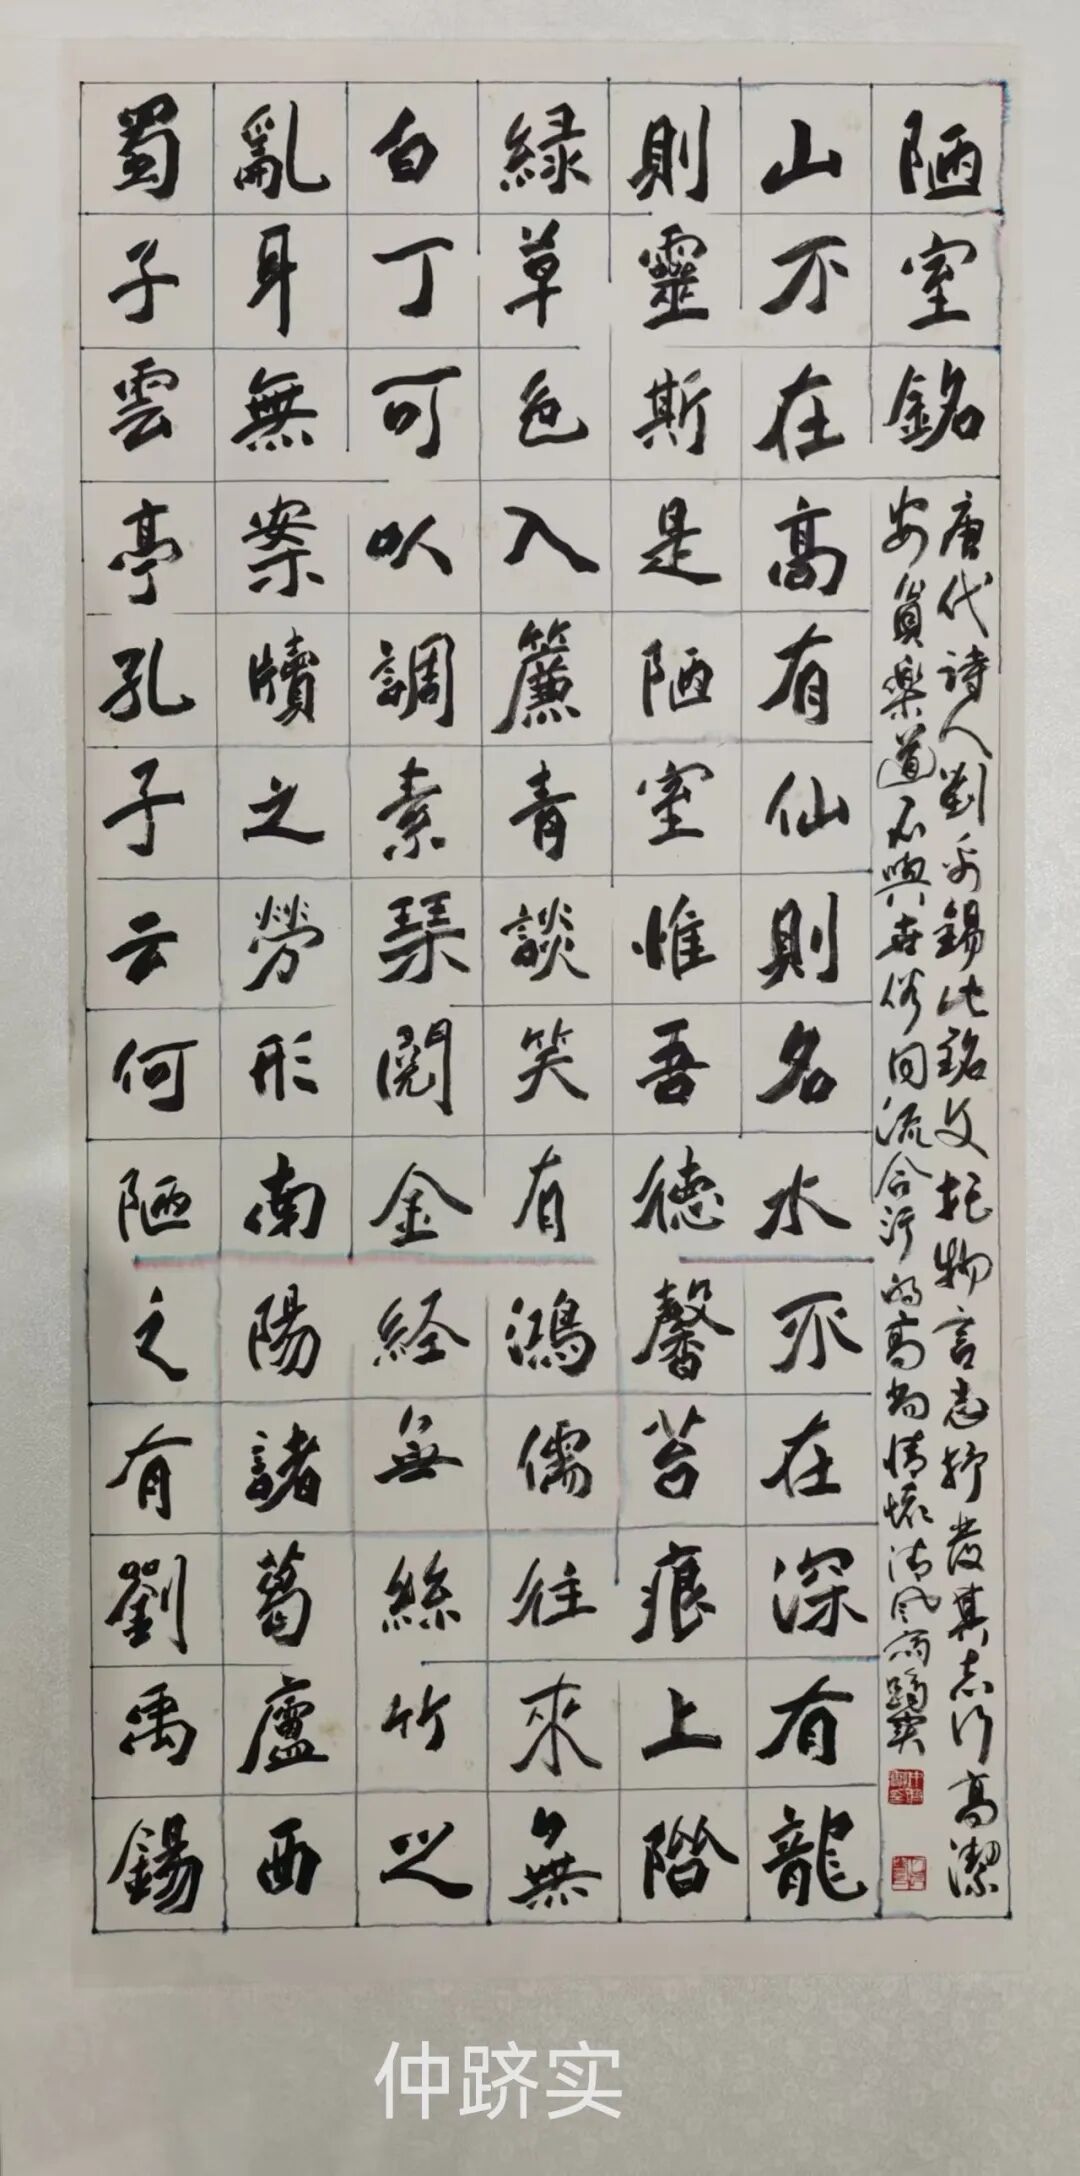 陋室銘
唐代詩人劉禹錫此銘文托物言志抒發其志行高潔
安貧樂道不與世俗同流合污的高尚情懷清風齋躋实
山不在高有仙則名水不在深有龍
則靈斯是陋室惟吾德馨苔痕上階
緑草色入簾青談笑有鴻儒往來無
白丁可以調素琴閱金経無絲竹之
亂耳無案牘之勞形南陽諸葛廬西
蜀子雲亭孔子云何陋之有劉禹錫
仲跻实